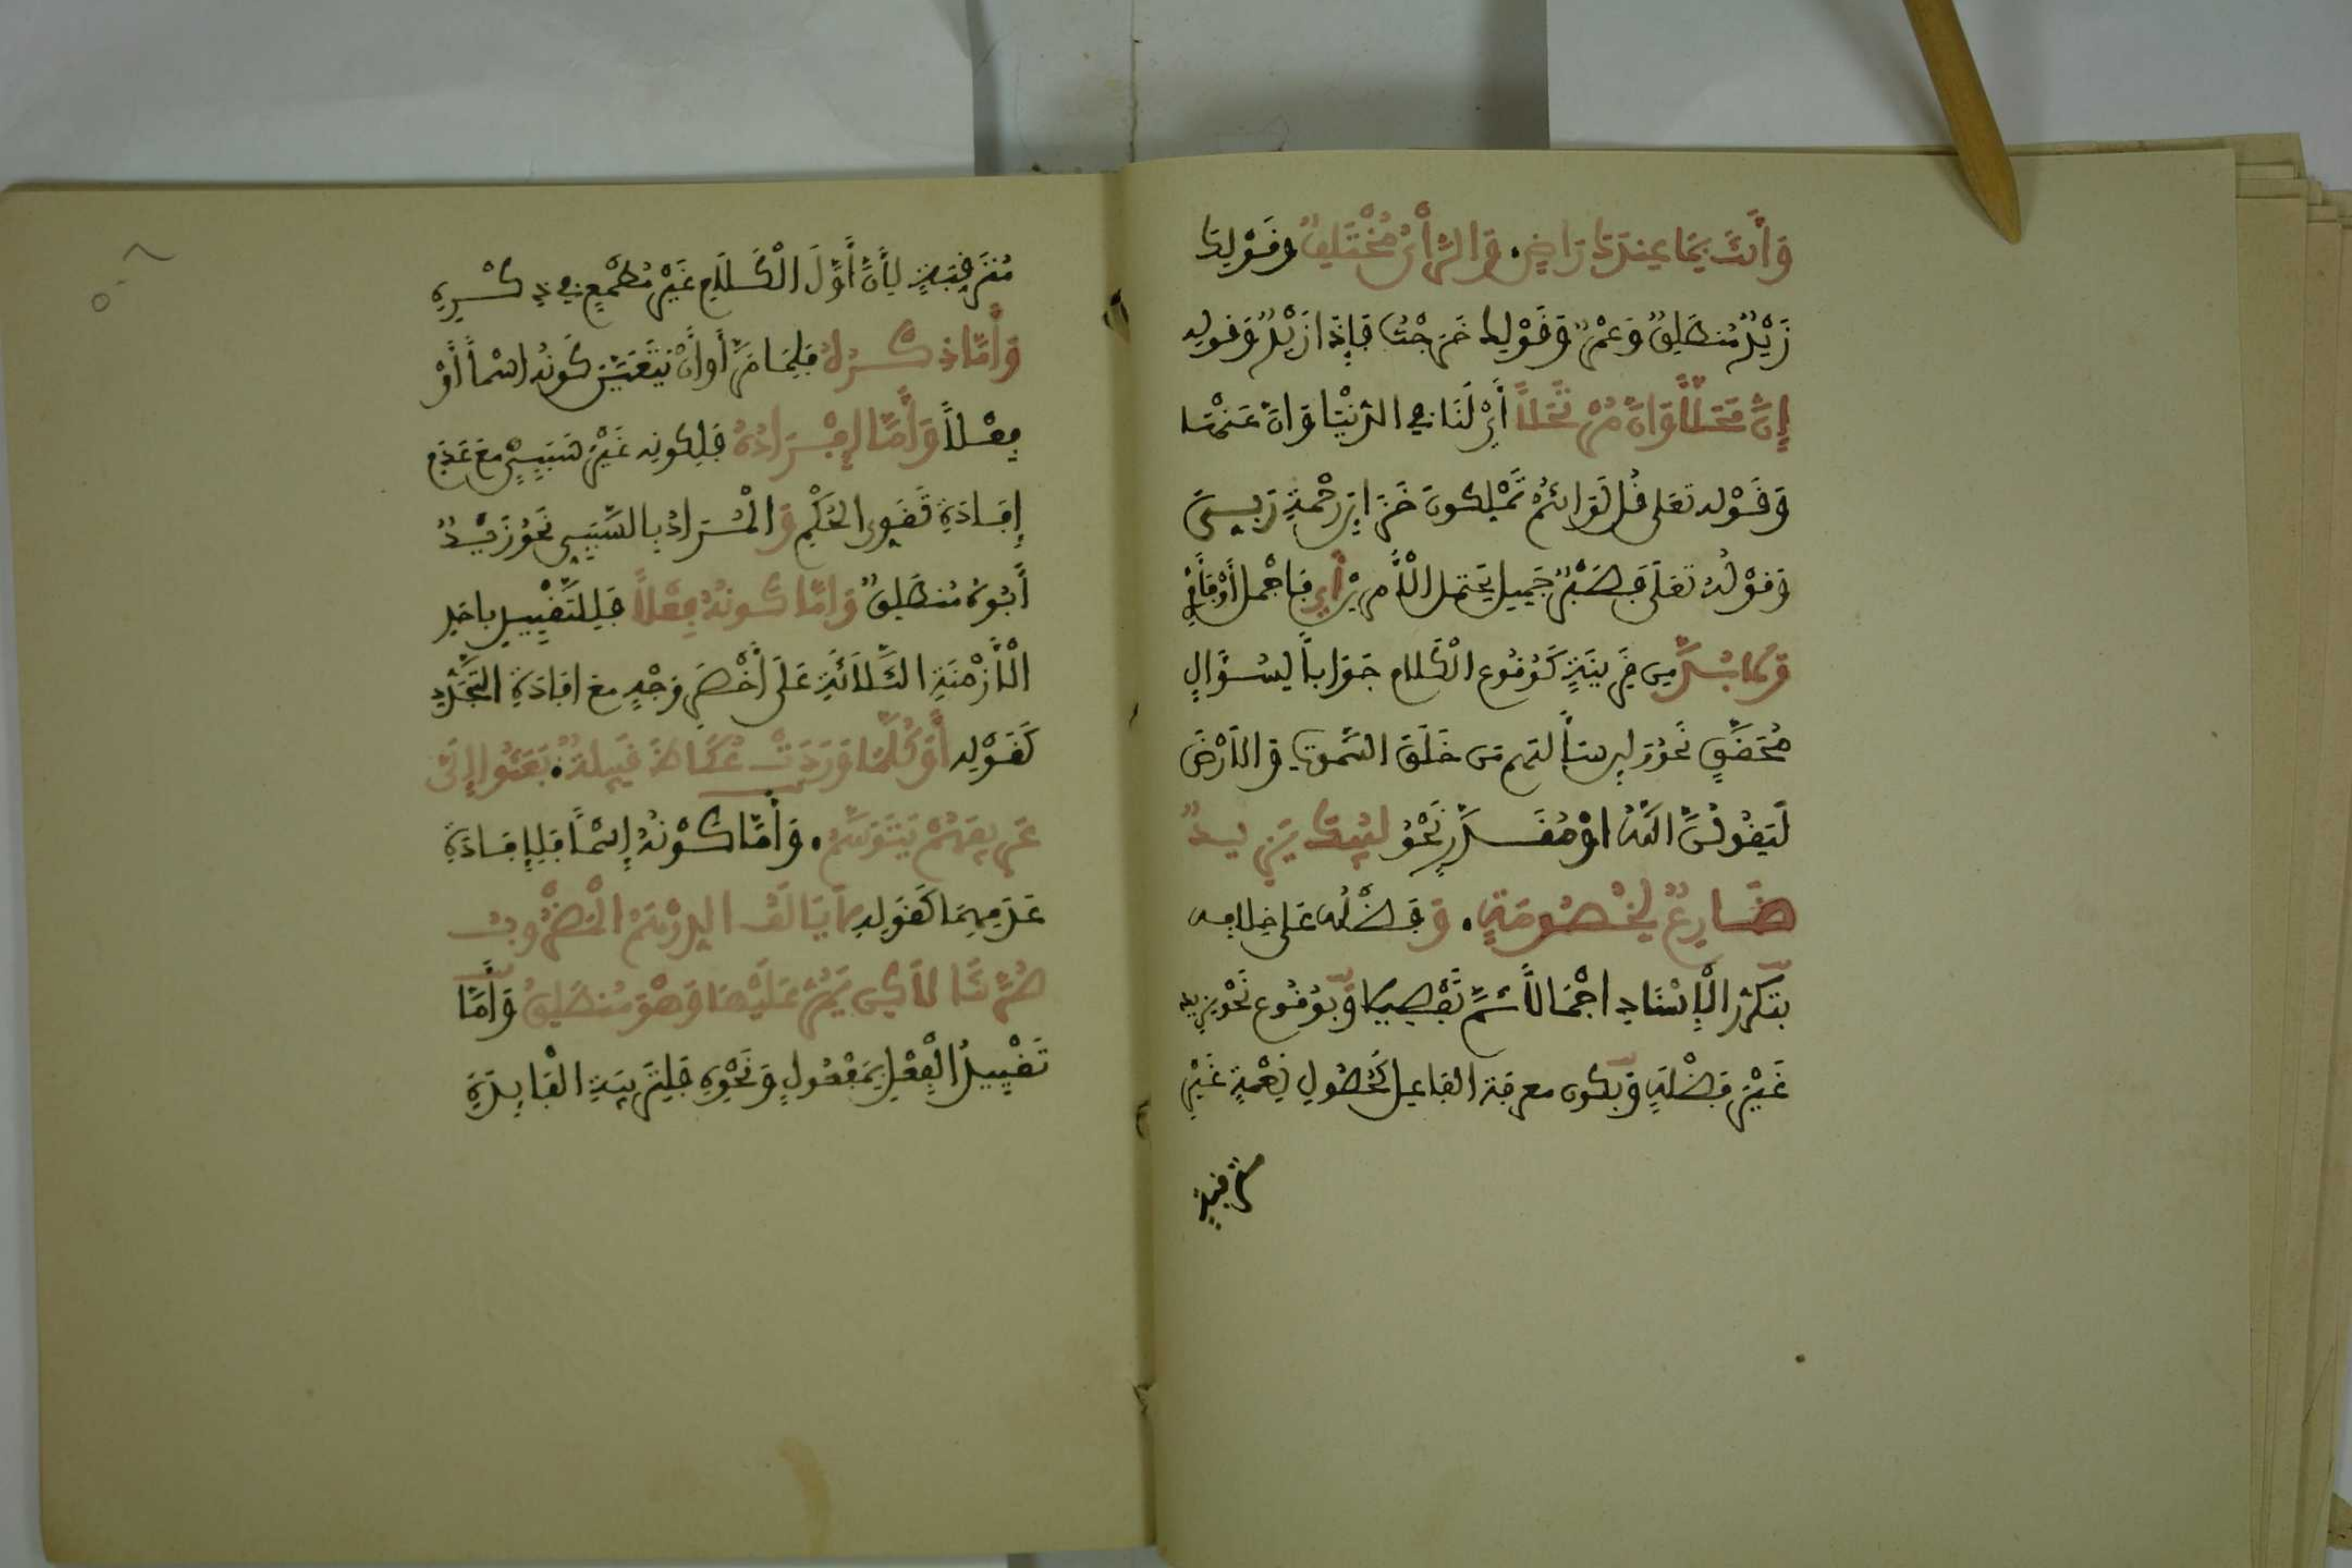 وَأَنْتَ بِمَا عِنْدَكَ رَاضٍ • وَالرَّأْيُ مُخْتَلِفُ وَقَوْلِكَ
زَيْدٌ مُنْطَلِقٌ وَعَمْرٌو وَقَوْلِكَ خَرَجْتُ فَإِذَا زَيْدٌ وَقوله
إِنَّ مَحَلًّا وَإِنَّ مُرْتَحَلًا أَيْ لَنَا فِي الدُّنْيَا وَإِنَّ عَنْهَا
وَقَوْله تعلى قُل لَوَ انتُمْ تَمْلِكُونَ خَزَاينَ رَحْمَةِ رَبِّي
وَقَوْلُهُ تَعَلَى فَصَبْرٌ جَمِيلٌ يَحْتَمِلُ الْأَمْرَيْنِ أَي فَأَجْمَلُ أَوْ فَأَمْرِي
وَلَابُدَّ مِن قَرِينَةٍ كَوُقُوعِ الْكَلَامِ جَوَاباً لِسُؤَالٍ
مُحَقَّقٍ نَحْوُ وَلَئِن سَأَلْتَهُم مَّن خَلَقَ السَّمَوَتِ وَالَارْضَ
لَيَقُولُنَّ اللَّهُ اوْ مُقَدَّرٍ نَحْوُ لِيُبْكَ يَزِيدٌ
ضَارِعٌ لِخُصُومَةٍ • وَفَضْلُه عَلَى خِلَافِه
بِتَكَرُّرِ الْإِسْنَادِ اجْمَالًا ثُمَّ تَفْصِيلًا وَبِوُقُوعِ نَحْوِ يزيد
غَيْرَ فَضْلَةٍ وَبِكَوْنِ مَعرفة الفَاعِلِ كَحُصُولِ نِعْمَةٍ غَيْرِ
مُتَرَقَّبَةٍ لِأَنَّ أَوَّلَ الْكَلَامِ غَيْرُ مُطْمِعٍ فِي ذِكْرِهِ
وَأَمَّا ذِكْرُهُ فَلِمَا مَرَّ أَو أَنْ يَتَعَيَّنَ كَوْنُهُ اسْماً أَوْ
فِعْلاً وَأَمَّا إِفْرَادُهُ فَلِكَونِه غَيْرَ سَبَبِيٍّ مَعَ عَدَمِ
إِفَادَةِ تَقَوِّي الحُكْمِ وَالْمُرَادُ بِالسَّبَبِي نَحْوُ زَيْدٌ
أَبُوهُ مُنْطَلِقٌ وَامَّا كَونُهُ فِعْلاً فَلِلتَّقْيِيدِ بِاحَدِ
الْأَزْمِنَةِ الثَّلَاثَةِ عَلَى أَخْصَرِ وَجْهٍ مَعَ افَادَةِ التَّجَدُّدِ
كَقَوْلِهِ أَوَ كُلَّمَا وَرَدَتْ عُكَاظَ قَبِيلَةٌ • بَعَثُوا إِلَيَّ
عَرِيفَهُمْ يَتَوَسَّمُ • وَأَمَّا كَوْنُهُ إِسْمًا فَلِإِفَادَةِ
عَدَمِهِمَا كَقَوْلِهِ لَا يَالَفُ الدِّرْهَمُ الْمَضْرُوبُ
صُرَّتَنَا لَاكِن يَمُرُّ عَلَيْهَا وَهْوَ مُنْطَلِقُ وَأَمَّا
تَقْيِيدُ الْفِعْلِ بِمَفْعُولٍ وَنَحْوِهِ فَلِتَرْبِيَةِ الْفَايِدَةِ